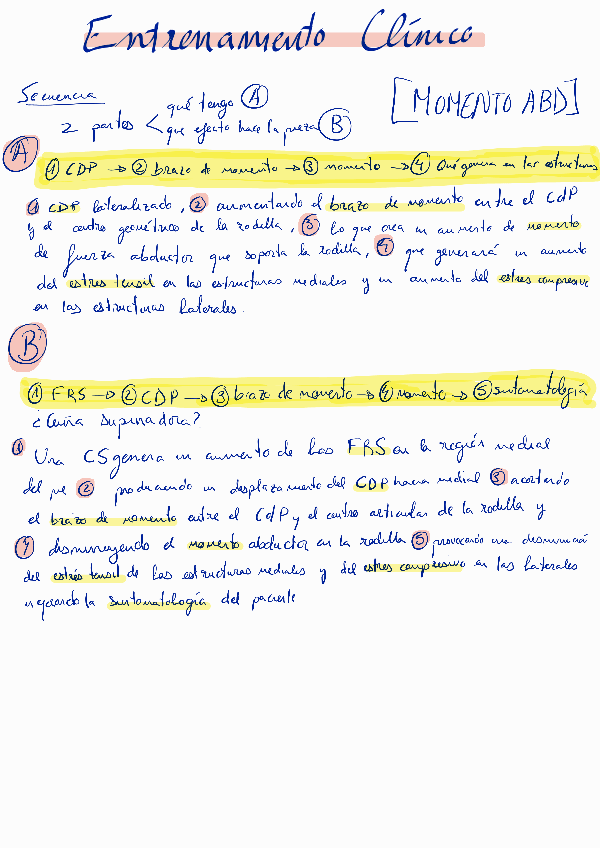 Entrenamiento Clínico
Secuencia
2 partes < qué tengo (A)
que efecto hace la pieza (B)
[MOMENTO ABD]
A
① CDP → ② brazo de momento → ③ momento → ④ Qué genera en las estructuras
① CDP lateralizado, ② aumentando el brazo de momento entre el CdP
y el centro geométrico de la rodilla, ③ lo que crea un aumento de momento
de fuerza abductor que soporta la rodilla, ④ que generará un aumento
del estres tensil en las estructuras mediales y un aumento del estres compresivo
en las estructuras laterales.
B
① FRS → ② CDP → ③ brazo de momento → ④ momento → ⑤ sintomatología
¿Cuña supinadora?
① Una CS genera un aumento de las FRS en la región medial
del pie ② produciendo un desplazamiento del CDP hacia medial ③ acortando
el brazo de momento entre el CdP y el centro articular de la rodilla y
④ disminuyendo el momento abductor en la rodilla ⑤ provocando una disminución
del estrés tensil de las estructuras mediales y del estres compresivo en las laterales
mejorando la sintomatología del paciente